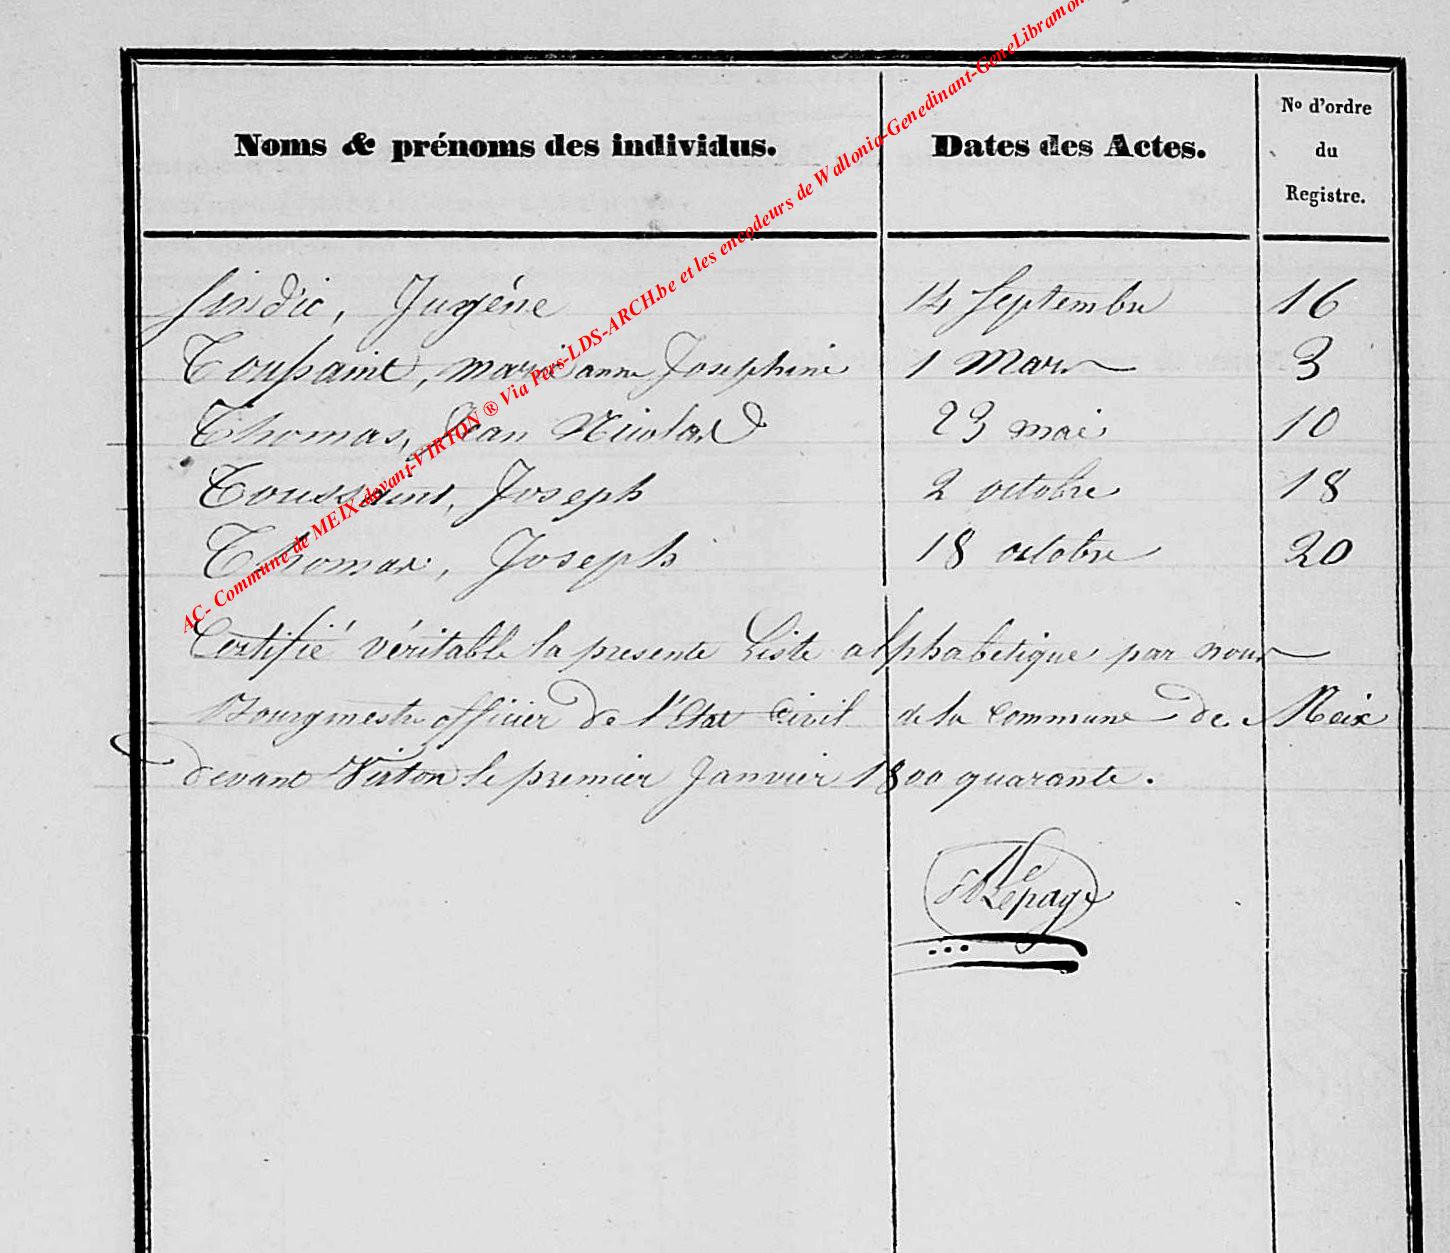 Noms & prénoms des individus. Dates des Actes. No d'ordre du Registre.
Sindic, Jugéne 14 Septembre 16
Toussaint, marie anne Josephine 1 Mars 3
Thomas, Jean Nicolas 23 mai 10
Toussaint, Joseph 2 octobre 18
Thomas, Joseph 18 octobre 20
Certifié véritable la presente Liste alphabetique par nous
Bourgmestre officier de l'Etat Civil de la Commune de Meix
devant Virton le premier Janvier 1800 quarante.
Lepage
AC- Commune de MEIX-devant-VIRTON ® Via Pers-LDS-ARCH.be et les encodeurs de Wallonia-Genedinant-GeneLibramon